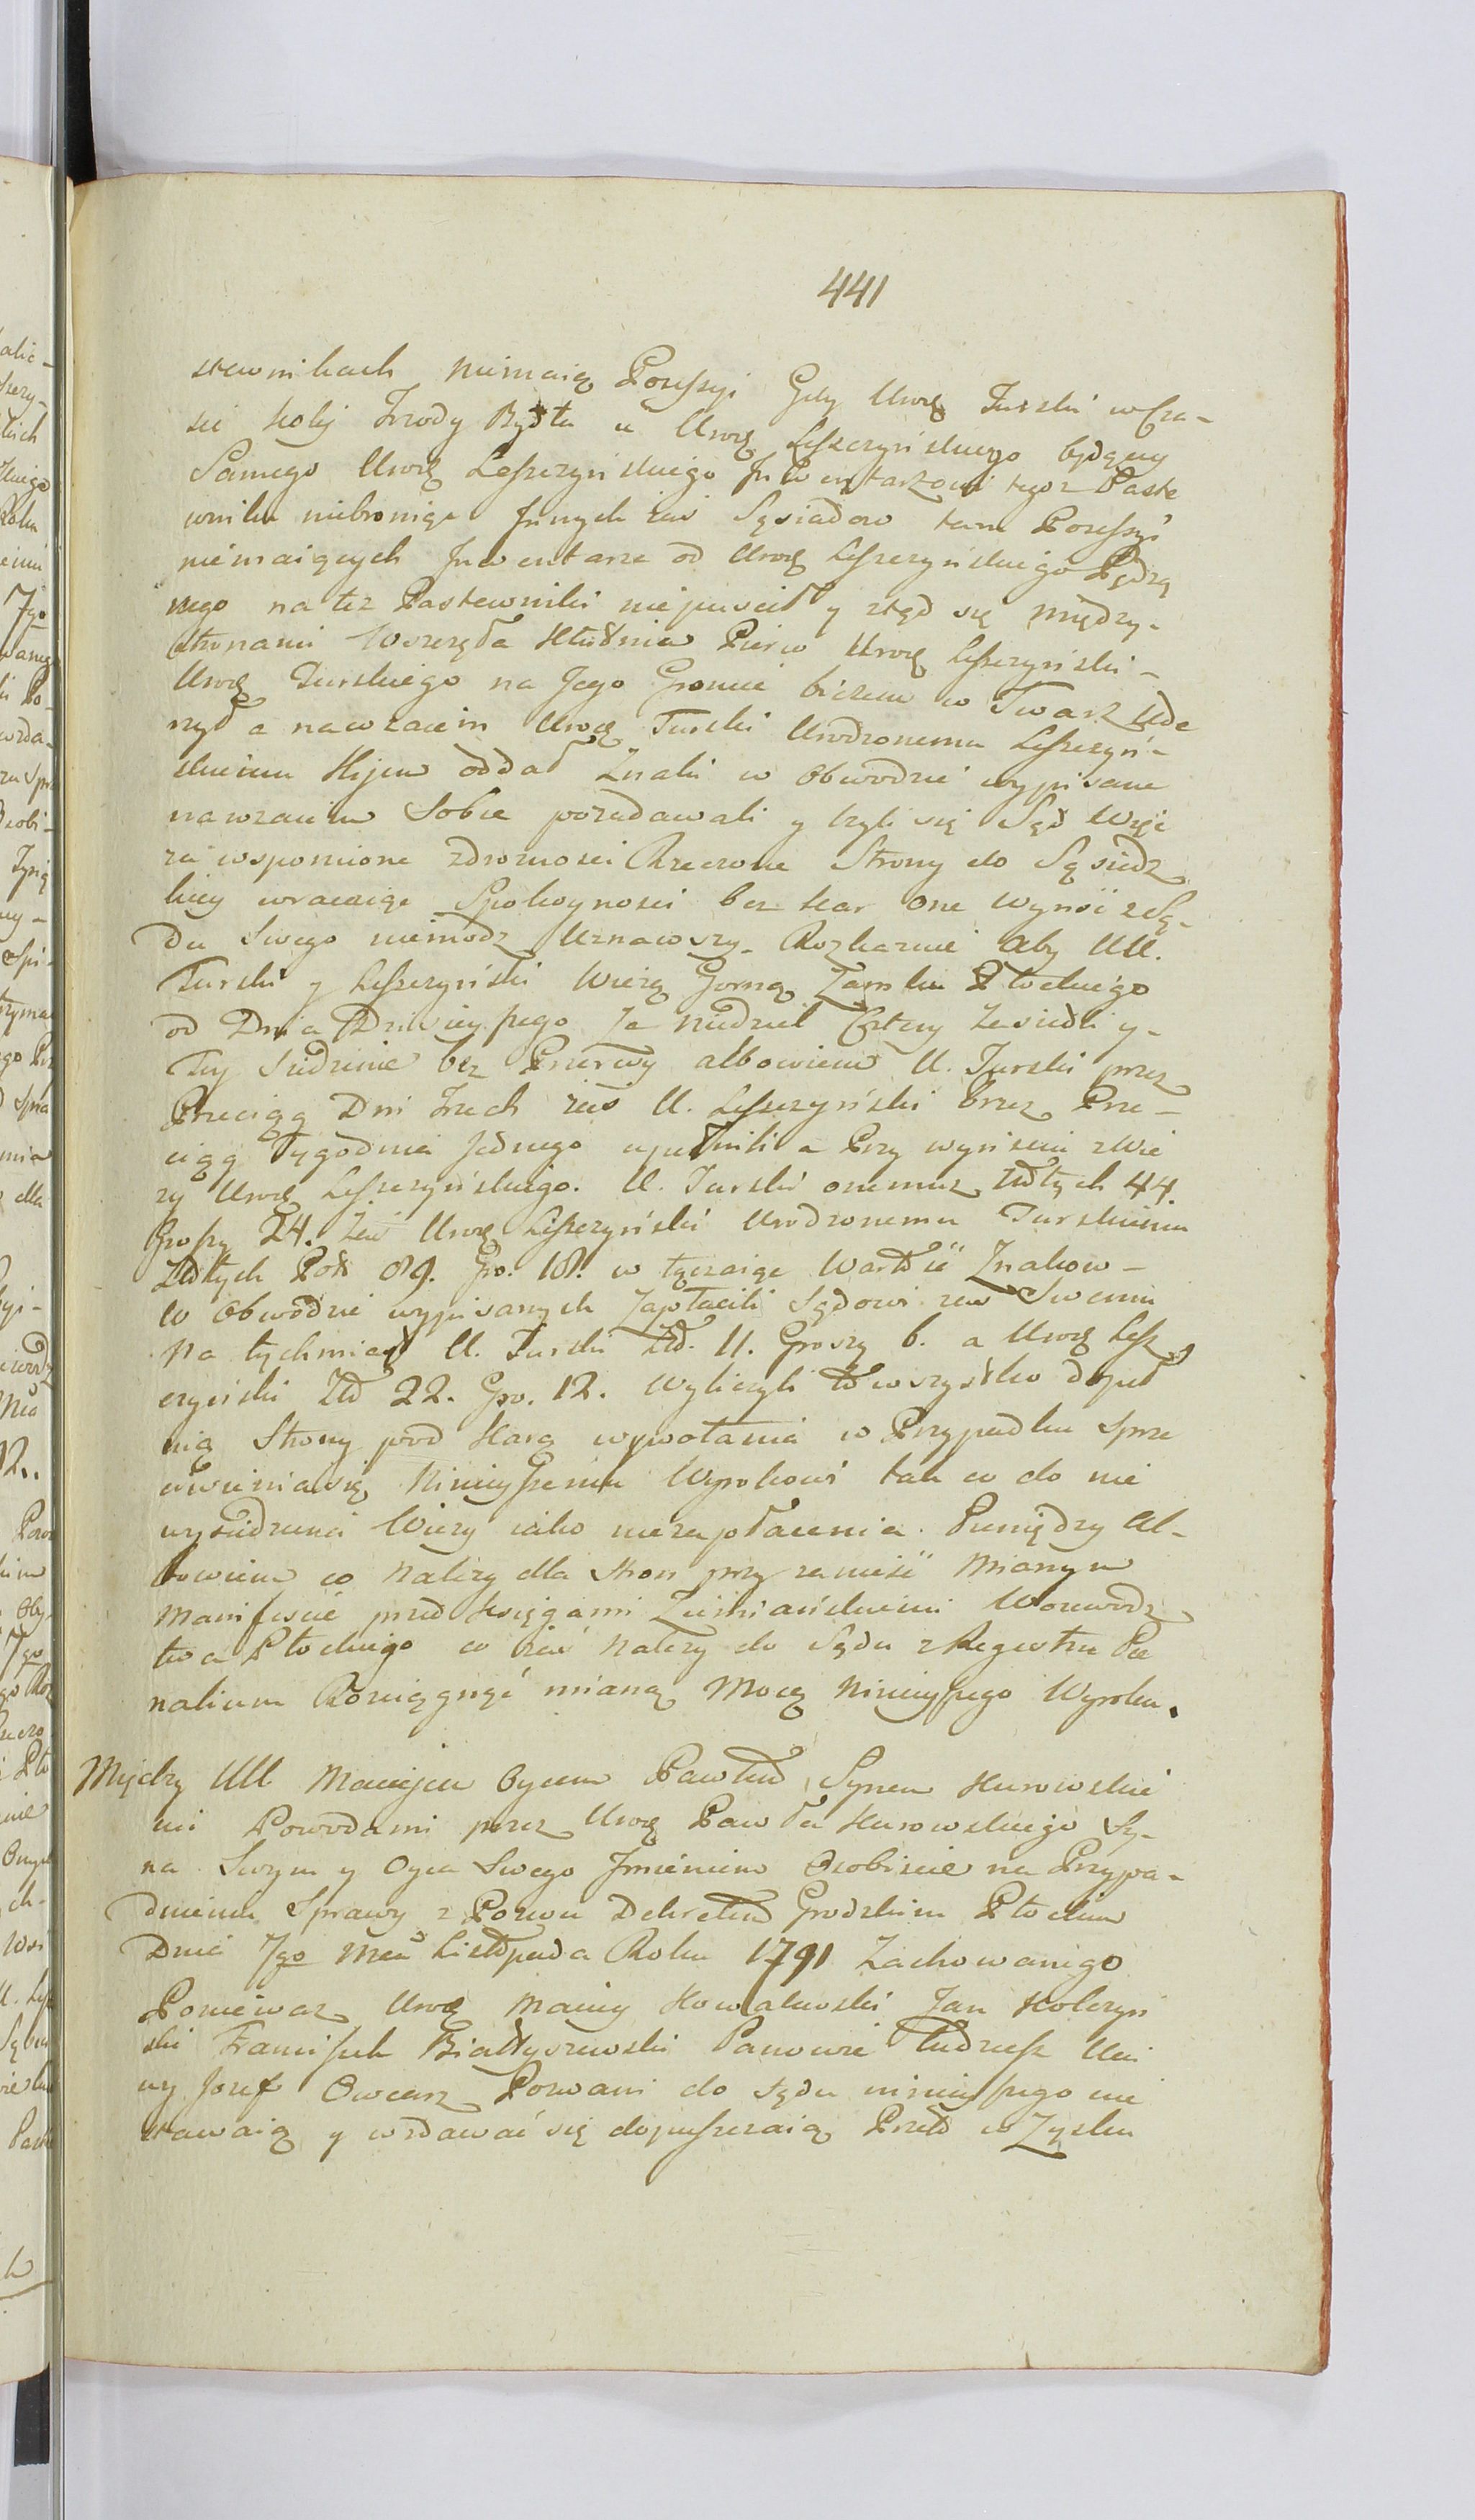 441
stewnikach niemaią Possessyi Gdy Urodz Turski w Cza-
sie koley Trzody Bydła u Urodz Leszczyńskiego będącey
Samego Urodz Leszczyńskiego Jnwentarzowi tegoz Paste
wniku niebroniąc Jnnych zaś Sąsiadow tam Possessyi
niemaiących Jnwentarze od Urodz Leszczyńskiego Pędzą
nego na też Pastewniki niepuścił y ztąd się między-
Stronami Wszczęła Kłutnia Pierw Urodz Leszczyński-
Urodz Turskiego na Jego Groncie biczem w Twarz Ude
rzył a nawzaiem Urodz Turski Urodzonemu Leszczyń-
skiemu Kijem oddał Znaki w Obwodzie wypisane
nawzaiem Sobie pozadawali y byli się Sąd Więc
za wspomione zdrożności Rzeczone Strony do Sąsiedz
kiey wracaiąc Spokoyności bez kar one Wyniść z Są-
du Swego niemodz Uznawszy- Rozkazuie Aby UU.
Turski y Leszczyński Wieżę Gorną Zamku Płockiego
od Dnia Dzisieyszego Za Niedziel Cztery Zasiedli y-
Tey Siedzenie bez Przerwy albowiem U. Turski przez
Przeciąg Dni Trzech zaś U. Leszczyński Przez Prze-
ciąg Tygodnia Jednego wypełnili a Przy wyniściu z Wie
ży Urodz Leszczyńskiego. U. Turski onemuz Złłtych 44.
Groszy 24. Zaś Urodz Leszczyński Urodzonemu Turskiemu
Złłtych Pols 89. Gro. 18. w tyczaiąc Wartść Znakow-
w Obwodzie wypisanych Zapłacili Sądowi zaś Swemu
Natychmiast U. Turski Złł. 11. Groszy 6. a Urodz Lesz
czyński Złł 22. Gro. 12. Wyliczyli to wszystko dopeł
nią Strony pod Karą wywołania w Przypadku Sprze
ciwienia się Ninieyszemu Wyrokowi tak co do nie
wysiedzenia Wieży iako niezapłacenia. Pieniędzy Al-
bowiem co Należy dla Stron przy zanieść Mianym
Manifescie przed Księgami Ziemiańskiemi Woiewodz
twa Płockiego co zaś Należy do Sądu z Regestru Pae
nalium Rosciągnąć mianą Mocą Ninieyszego Wyroku.
Między UU Maciejem Oycem Pawłem Synem Kurowskie
mi Powodami przez Urodz Pawła Kurowskiego Sy-
na Swym y Oyca Swego Jmieniem Osobiscie na Przypa-
dnieniu Sprawy z Pozwu Dekretem Grodzkim Płockim
Dnia 7go Mca Listopada Roku 1791 Zachowanego
Ponieważ Urodz Maciey Kowalewski Jan Kolczyń
ski Franciszek Białyszewski Panowie Tudziesz Ucz
wy Jozef Owczarz Pozwani do Sądu ninieyszego nie
stawaią y wzdawać się dopuszczaią Przeto w Zysku